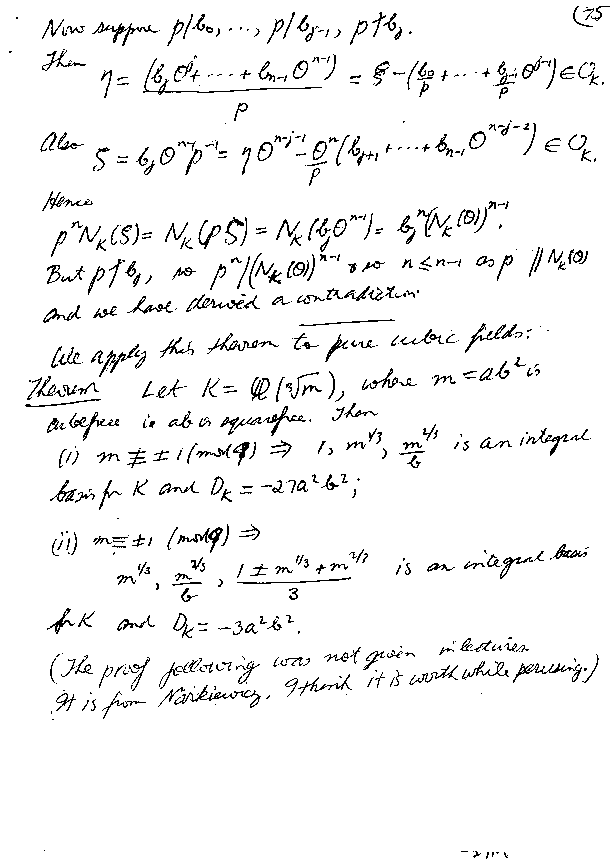 (75
Now suppose p|b₀, ..., p|b_{j-1}, p∤b_j.
Then η = (b_j θ^j + ... + b_{n-1} θ^{n-1}) / p = ξ - (b₀/p + ... + b_{j-1}/p θ^{j-1}) ∈ O_K.
Also ζ = b_j θ^{n-1} p^{-1} = η θ^{n-j-1} - θ^n/p (b_{j+1} + ... + b_{n-1} θ^{n-j-2}) ∈ O_K.
Hence
p^n N_K(ζ) = N_K(pζ) = N_K(b_j θ^{n-1}) = b_j^n (N_K(θ))^{n-1}.
But p∤b_j, so p^n | (N_K(θ))^{n-1} & so n ≤ n-1 as p || N_K(θ)
and we have derived a contradiction
We apply this theorem to pure cubic fields:
Theorem Let K = Q(∛m), where m = ab² is
cubefree ie ab is squarefree. Then
(i) m ≢ ±1 (mod 9) ⇒ 1, m^{1/3}, m^{2/3}/b is an integral
basis for K and D_K = -27a²b²;
(ii) m ≡ ±1 (mod 9) ⇒
m^{1/3}, m^{2/3}/b, (1 ± m^{1/3} + m^{2/3})/3 is an integral basis
for K and D_K = -3a²b².
(The proof following was not given in lectures.
It is from Narkiewicz. I think it is worth while perusing.)